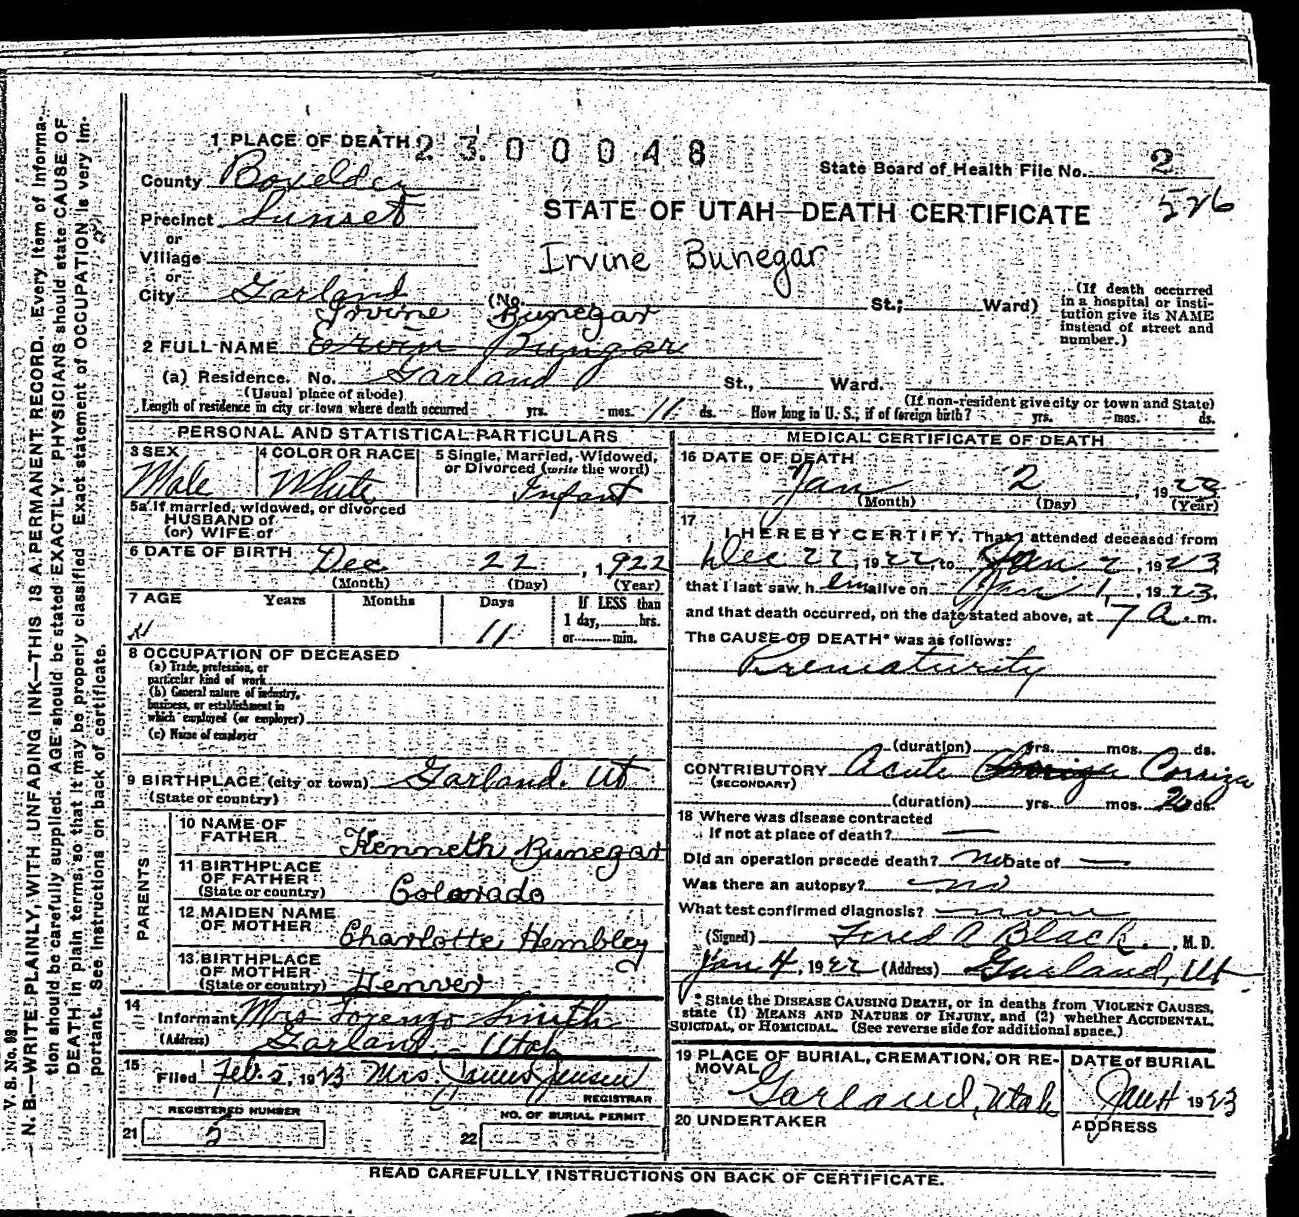 N. B.—WRITE PLAINLY, WITH UNFADING INK—THIS IS A PERMANENT RECORD. Every item of informa-
tion should be carefully supplied. AGE should be stated EXACTLY. PHYSICIANS should state CAUSE OF
DEATH in plain terms, so that it may be properly classified. Exact statement of OCCUPATION is very im-
portant. See instructions on back of certificate.
V. S. No. 98
1 PLACE OF DEATH 2 3 0 0 0 4 8
State Board of Health File No. 2
526
County Boxelder
Precinct Sunset
STATE OF UTAH—DEATH CERTIFICATE
or
Village
Irvine Bunegar
or
City Garland (No. St.; Ward)
(If death occurred
in a hospital or insti-
tution give its NAME
instead of street and
number.)
Irvine Bunegar
2 FULL NAME Ervin Bungar
(a) Residence. No. Garland St., Ward.
(Usual place of abode) (If non-resident give city or town and State)
Length of residence in city or town where death occurred yrs. mos. 11 ds. How long in U. S., if of foreign birth? yrs. mos. ds.
PERSONAL AND STATISTICAL PARTICULARS
3 SEX 4 COLOR OR RACE 5 Single, Married, Widowed,
or Divorced (write the word)
Male White Infant
5a If married, widowed, or divorced
HUSBAND of
(or) WIFE of
6 DATE OF BIRTH Dec. 22, 1922
(Month) (Day) (Year)
7 AGE Years Months Days If LESS than
1 day, hrs.
or min.
11
8 OCCUPATION OF DECEASED
(a) Trade, profession, or
particular kind of work
(b) General nature of industry,
business, or establishment in
which employed (or employer)
(c) Name of employer
9 BIRTHPLACE (city or town) Garland. Ut
(State or country)
PARENTS
10 NAME OF
FATHER Kenneth Bunegar
11 BIRTHPLACE
OF FATHER
(State or country) Colorado
12 MAIDEN NAME
OF MOTHER Charlotte Hembley
13 BIRTHPLACE
OF MOTHER
(State or country) Denver
14
Informant Mrs Lorenzo Smith
(Address) Garland, - Utah
15
Filed Feb. 5, 1923 Mrs. James Jensen
REGISTRAR
REGISTERED NUMBER NO. OF BURIAL PERMIT
21 2 22
MEDICAL CERTIFICATE OF DEATH
16 DATE OF DEATH
Jan 2, 1923
(Month) (Day) (Year)
17
I HEREBY CERTIFY, That I attended deceased from
Dec 22, 1922, to Jan 2, 1923,
that I last saw h em alive on Jan 1, 1923,
and that death occurred, on the date stated above, at 7 A. m.
The CAUSE OF DEATH* was as follows:
Prematurity
(duration) yrs. mos. ds.
CONTRIBUTORY Acute Corriza
(SECONDARY)
(duration) yrs. mos. 2 ds.
18 Where was disease contracted
If not at place of death? —
Did an operation precede death? no Date of —
Was there an autopsy? no
What test confirmed diagnosis? none
(Signed) Fred A Black, M. D.
Jan 4, 1922 (Address) Garland, Ut
* State the DISEASE CAUSING DEATH, or in deaths from VIOLENT CAUSES,
state (1) MEANS AND NATURE OF INJURY, and (2) whether ACCIDENTAL,
SUICIDAL, or HOMICIDAL. (See reverse side for additional space.)
19 PLACE OF BURIAL, CREMATION, OR RE-
MOVAL
Garland, Utah
DATE of BURIAL
Jan 4 1923
20 UNDERTAKER
ADDRESS
READ CAREFULLY INSTRUCTIONS ON BACK OF CERTIFICATE.